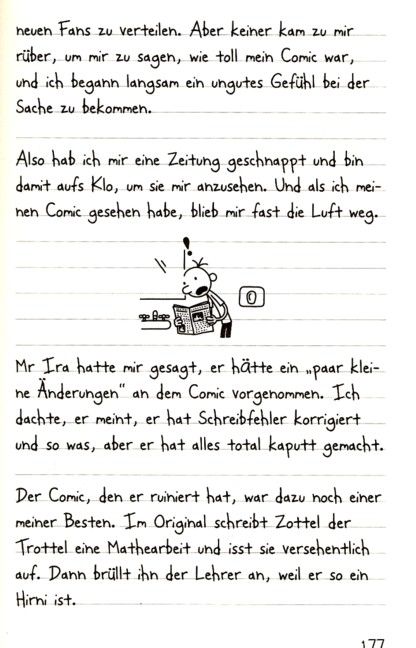 neuen Fans zu verteilen. Aber keiner kam zu mir
rüber, um mir zu sagen, wie toll mein Comic war,
und ich begann langsam ein ungutes Gefühl bei der
Sache zu bekommen.
Also hab ich mir eine Zeitung geschnappt und bin
damit aufs Klo, um sie mir anzusehen. Und als ich mei-
nen Comic gesehen habe, blieb mir fast die Luft weg.
!
Mr Ira hatte mir gesagt, er hätte ein „paar klei-
ne Änderungen“ an dem Comic vorgenommen. Ich
dachte, er meint, er hat Schreibfehler korrigiert
und so was, aber er hat alles total kaputt gemacht.
Der Comic, den er ruiniert hat, war dazu noch einer
meiner Besten. Im Original schreibt Zottel der
Trottel eine Mathearbeit und isst sie versehentlich
auf. Dann brüllt ihn der Lehrer an, weil er so ein
Hirni ist.
177